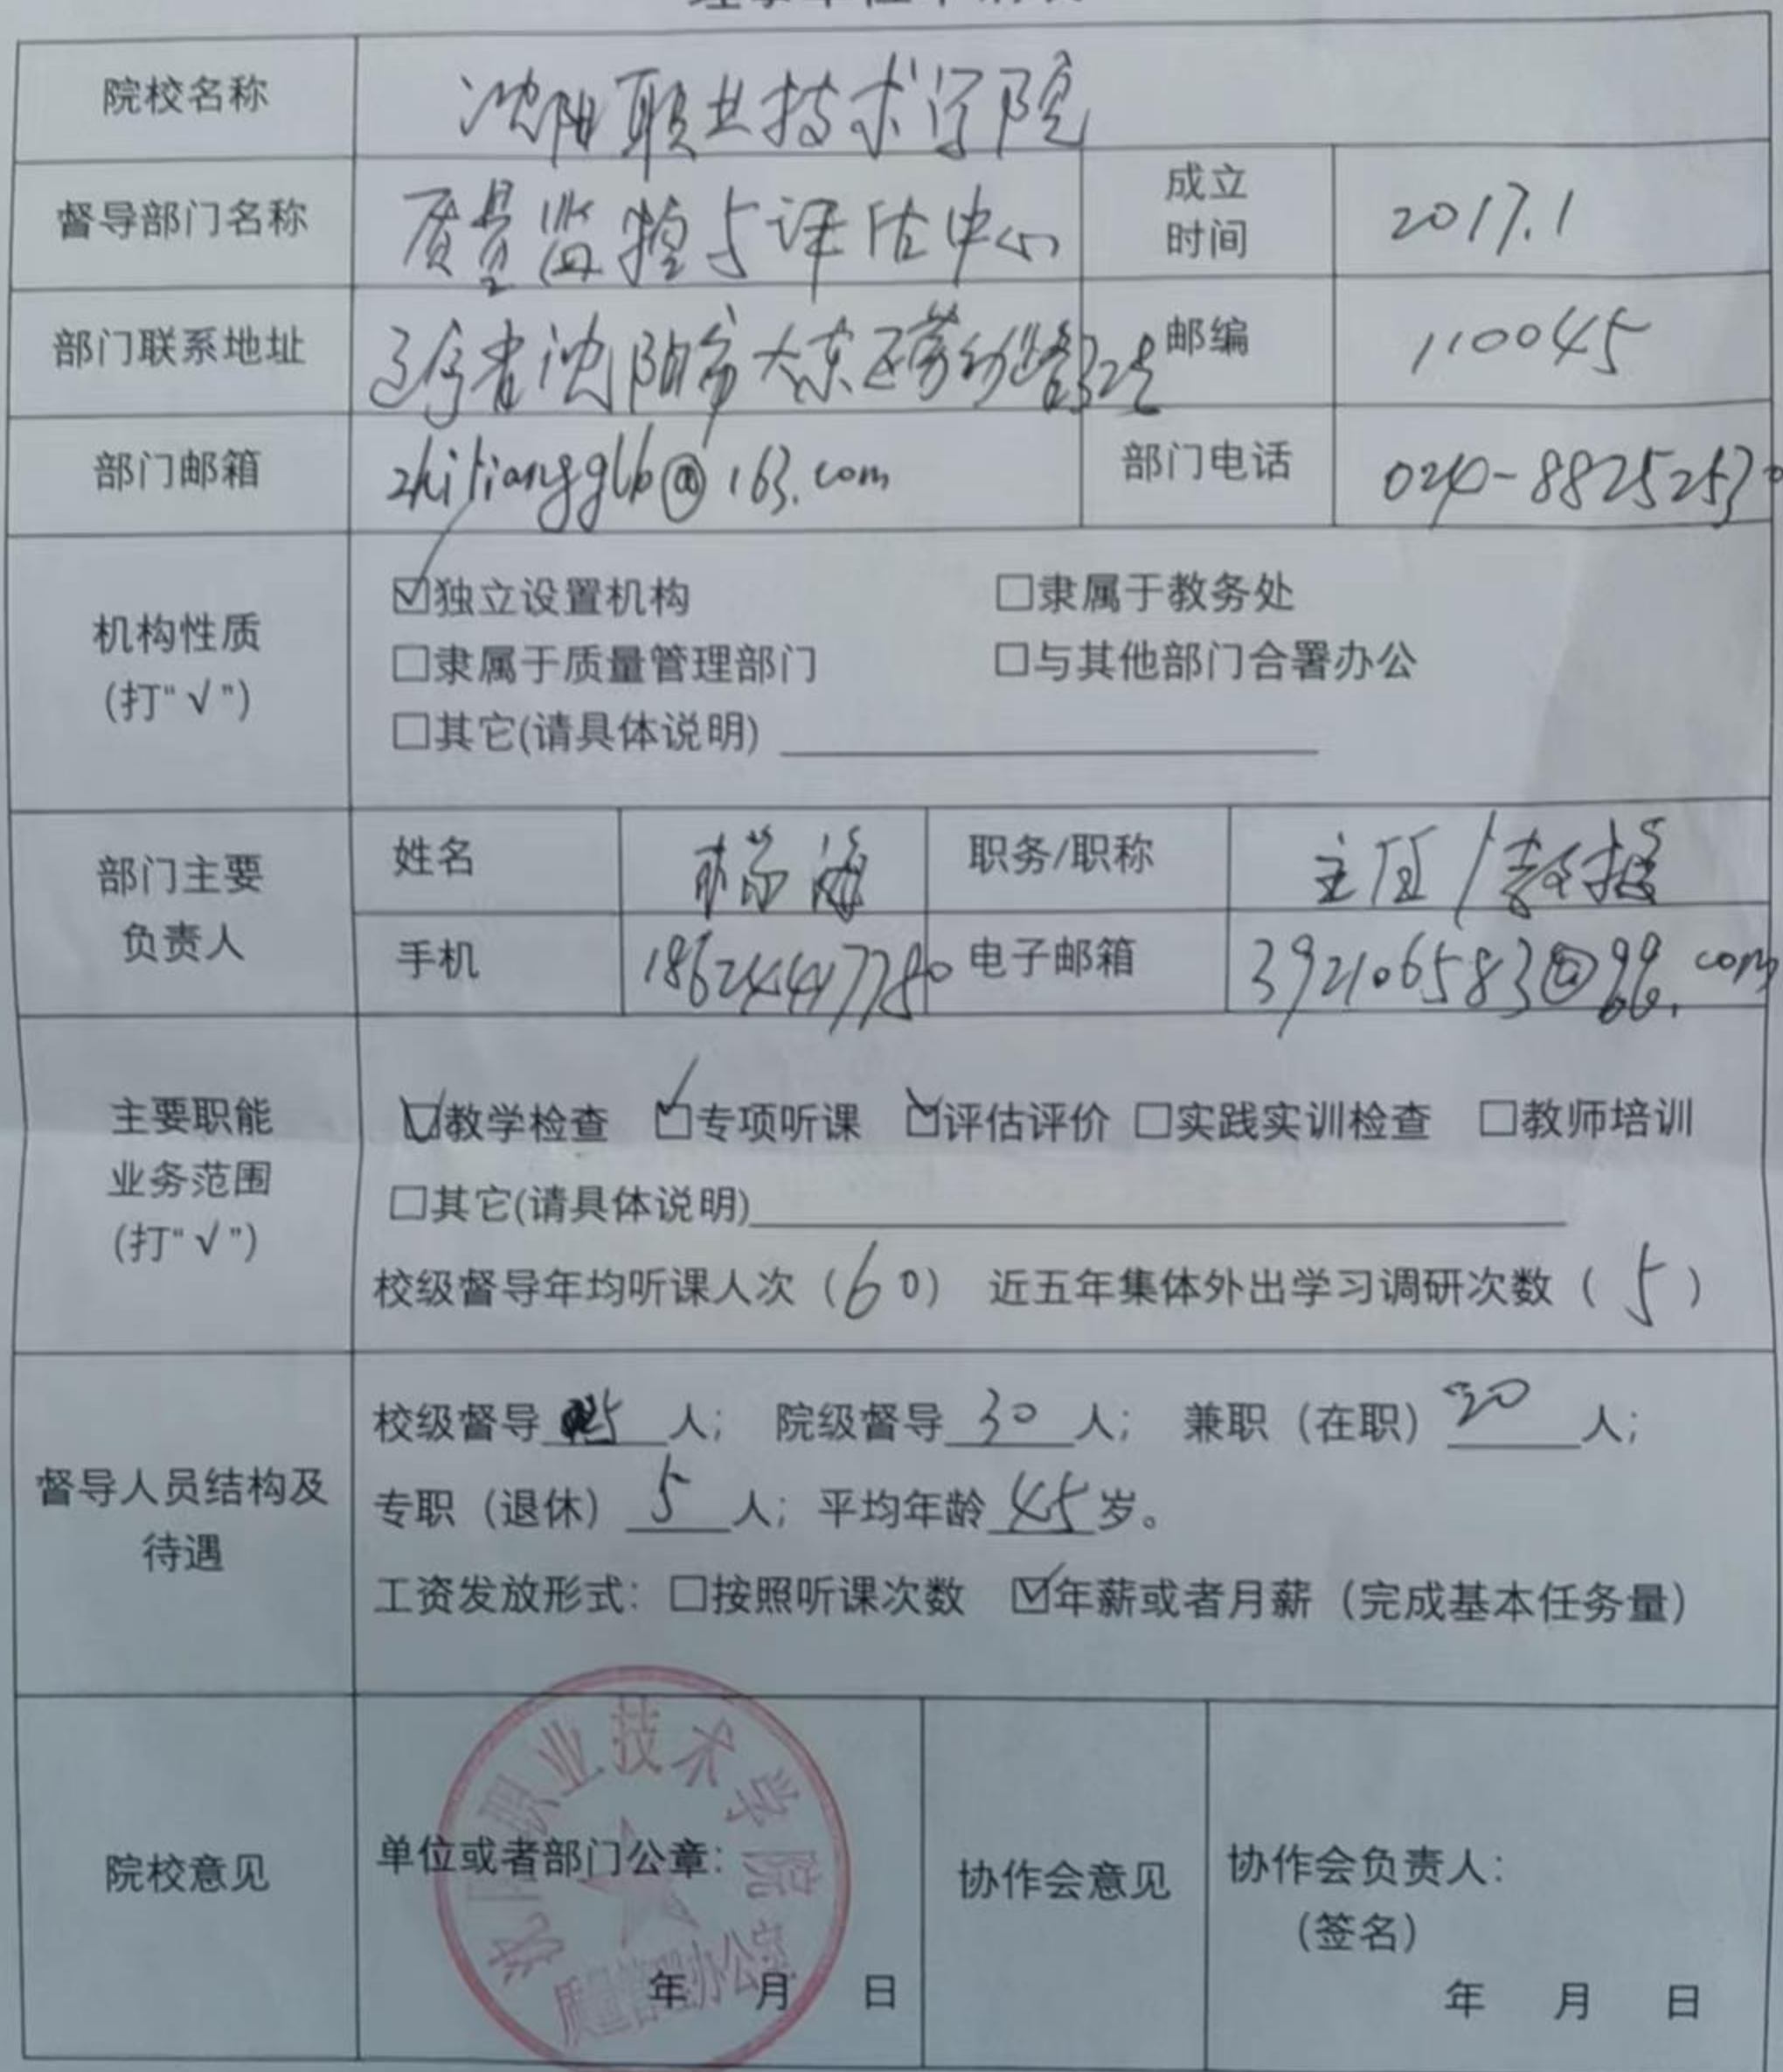 院校名称 沈阳职业技术学院
督导部门名称 质量监控与评估中心 成立时间 2017.1
部门联系地址 辽宁省沈阳市大东区劳动路32号 邮编 110045
部门邮箱 zhiliangglb@163.com 部门电话 024-88252530
机构性质
(打"√")
☑独立设置机构 □隶属于教务处
□隶属于质量管理部门 □与其他部门合署办公
□其它(请具体说明)
部门主要
负责人
姓名 职务/职称 主任/教授
手机 18624447780 电子邮箱 392106583@qq.com
主要职能
业务范围
(打"√")
☑教学检查 ☑专项听课 ☑评估评价 □实践实训检查 □教师培训
□其它(请具体说明)
校级督导年均听课人次（60） 近五年集体外出学习调研次数（5）
督导人员结构及
待遇
校级督导 人； 院级督导 30 人； 兼职（在职） 20 人；
专职（退休） 5 人；平均年龄 45 岁。
工资发放形式：□按照听课次数 ☑年薪或者月薪（完成基本任务量）
院校意见
单位或者部门公章：
年 月 日
沈阳职业技术学院
质量管理办公室
协作会意见
协作会负责人：
（签名）
年 月 日